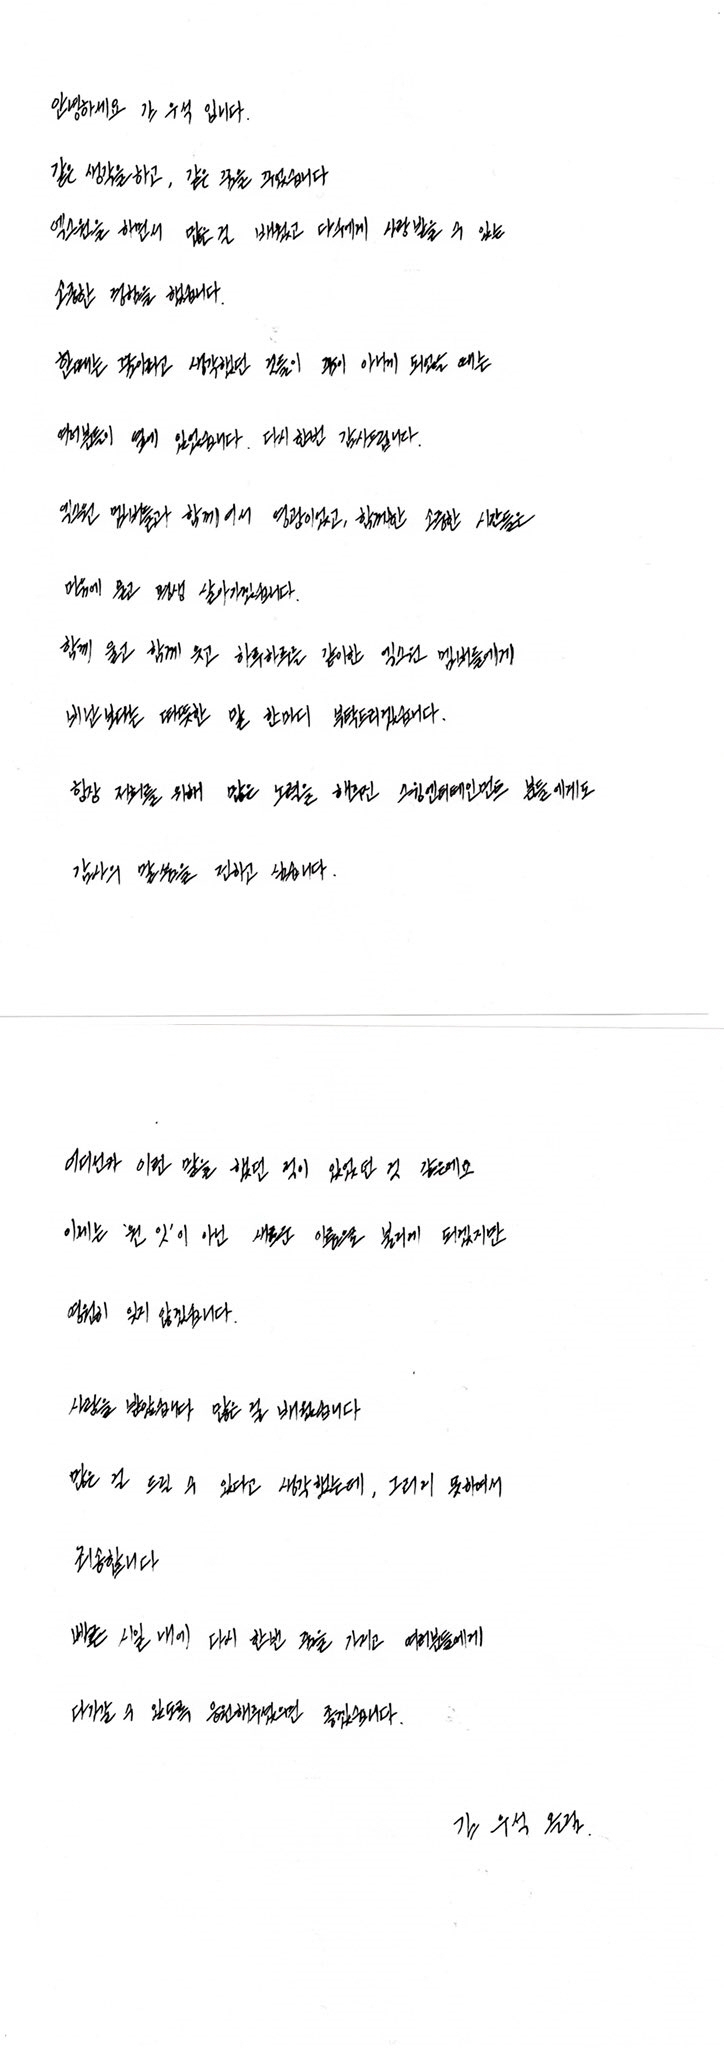 안녕하세요 김 우석 입니다.
같은 생각을 하고, 같은 꿈을 꾸었습니다
엑스원을 하면서 많은 걸 배웠고 다수에게 사랑 받을 수 있는
소중한 경험을 했습니다.
한때는 꿈이라고 생각했던 것들이 꿈이 아니게 되었을 때는
여러분들이 옆에 있었습니다. 다시 한번 감사드립니다.
엑스원 멤버들과 함께여서 영광이었고, 함께한 소중한 시간들은
마음에 품고 평생 살아가겠습니다.
함께 울고 함께 웃고 하루하루를 같이한 엑스원 멤버들에게
비난보다는 따뜻한 말 한마디 부탁드리겠습니다.
항상 저희를 위해 많은 노력을 해주신 스윙엔터테인먼트 분들에게도
감사의 말씀을 전하고 싶습니다.
어디선가 이런 말을 했던 적이 있었던 것 같은데요
이제는 '원 잇'이 아닌 새로운 이름으로 불리게 되겠지만
영원히 잊지 않겠습니다.
사랑을 받았습니다 많은 걸 배웠습니다
많은 걸 드릴 수 있다고 생각했는데, 그러지 못하여서
죄송합니다
빠른 시일 내에 다시 한번 꿈을 가지고 여러분들에게
다가갈 수 있도록 응원해주셨으면 좋겠습니다.
김 우석 올림.